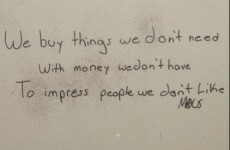 We buy things we don't need
With money we don't have
To impress people we don't Like